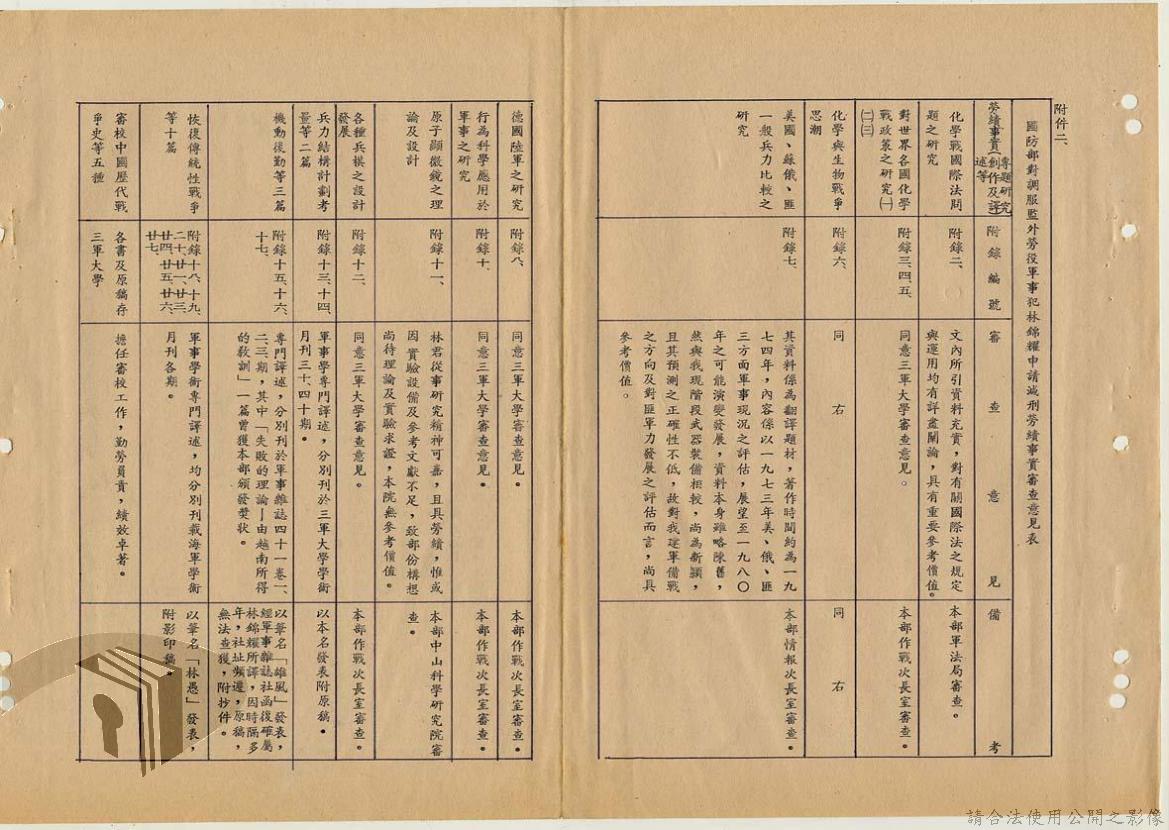 附件二、
國防部對調服監外勞役軍事犯林錦耀申請減刑勞績事實審查意見表
勞績事實（專題研究
創作及譯
述等）
附錄編號
審查意見
備考
化學戰國際法問
題之研究
附錄二、
文內所引資料充實，對有關國際法之規定
與運用均有詳盡闡論，具有重要參考價值。
本部軍法局審查。
對世界各國化學
戰政策之研究㈠
㈡㈢
附錄三、四、五、
同意三軍大學審查意見。
本部作戰次長室審查。
化學與生物戰爭
思潮
附錄六、
同右
同右
美國、蘇俄、匪
一般兵力比較之
研究
附錄七、
其資料係為翻譯題材，著作時間約為一九
七四年，內容係以一九七三年美、俄、匪
三方面軍事現況之評估，展望至一九八〇
年之可能演變發展，資料本身雖略陳舊，
然與我現階段武器裝備相較，尚為新穎，
且其預測之正確性不低，故對我建軍備戰
之方向及對匪軍力發展之評估而言，尚具
參考價值。
本部情報次長室審查。
德國陸軍之研究
附錄八、
同意三軍大學審查意見。
本部作戰次長室審查。
行為科學應用於
軍事之研究
附錄十、
同意三軍大學審查意見。
本部作戰次長室審查。
原子顯微鏡之理
論及設計
附錄十一、
林君從事研究精神可嘉，且具勞績，惟或
因實驗設備及參考文獻不足，致部份構想
尚待理論及實驗求證，本院無參考價值。
本部中山科學研究院審
查。
各種兵棋之設計
發展
附錄十二、
同意三軍大學審查意見。
本部作戰次長室審查。
兵力結構計劃考
量等二篇
附錄十三、十四、
軍事學專門譯述，分別刊於三軍大學學術
月刊三十、四十期。
以本名發表附原稿。
機動後勤等三篇
附錄十五、十六、
十七、
專門譯述，分別刊於軍事雜誌四十一卷一、
二、三期，其中「失敗的理論—由越南所得
的教訓」一篇曾獲本部頒發獎狀。
以筆名「雄風」發表，
經軍事雜誌社函復確屬
林錦耀所譯，因時隔多
年，社址頻遷，原稿，
無法查獲，附抄件。
恢復傳統性戰爭
等十篇
附錄十八、十九、
二十、廿一、廿三、
廿四、廿五、廿六、
廿七、
軍事學術專門譯述，均分別刊載海軍學術
月刊各期。
以筆名「林愚」發表，
附影印稿。
審校中國歷代戰
爭史等五種
各書及原稿存
三軍大學
擔任審校工作，勤勞負責，績效卓著。
請合法使用公開之影像